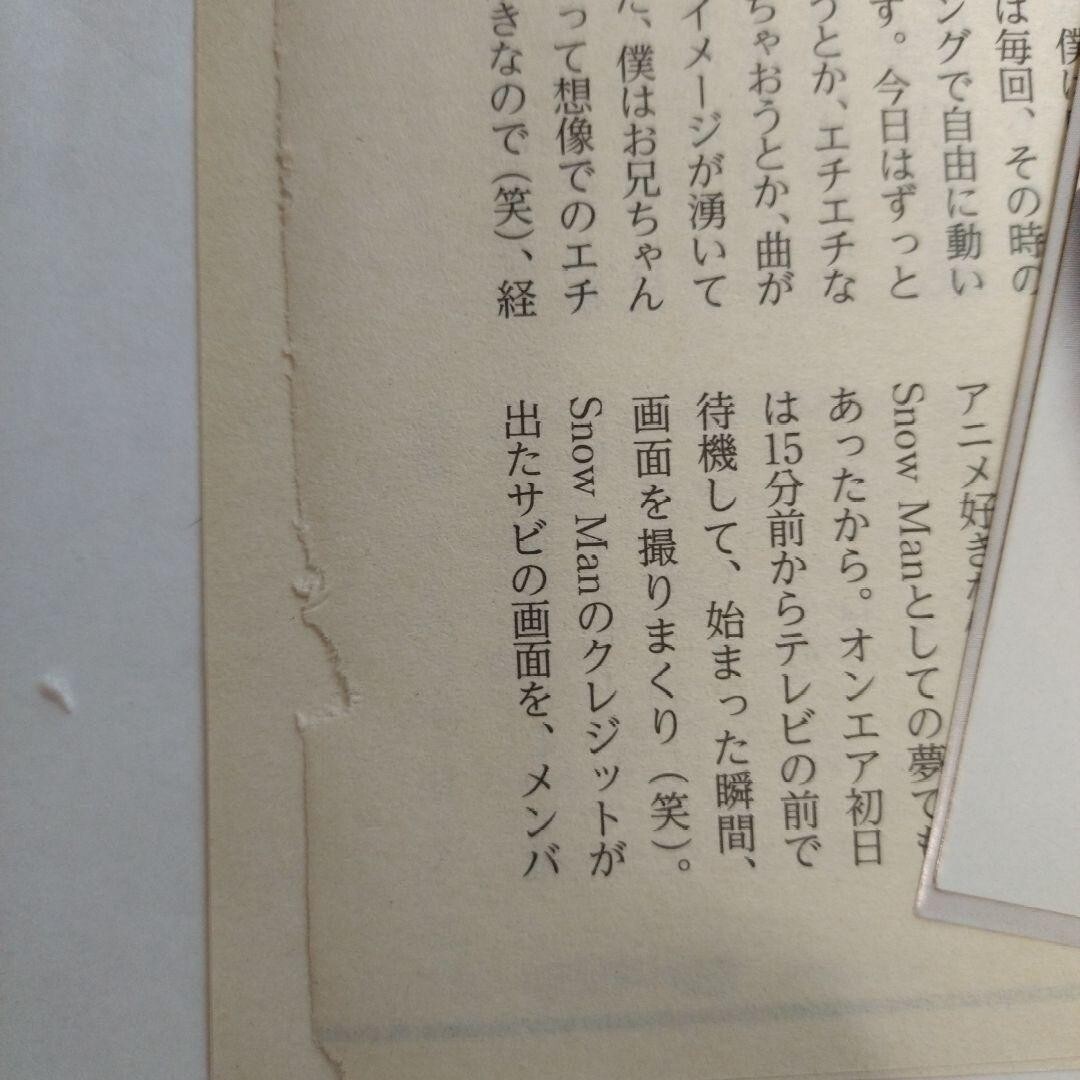 僕
は毎回、その時の
ングで自由に動い
す。今日はずっと
うとか、エチエチな
ちゃおうとか、曲が
イメージが湧いて
た、僕はお兄ちゃん
って想像でのエチ
きなので(笑)、経
アニメ好き
Snow Manとしての夢でも
あったから。オンエア初日
は15分前からテレビの前で
待機して、始まった瞬間、
画面を撮りまくり(笑)。
Snow Manのクレジットが
出たサビの画面を、メンバ